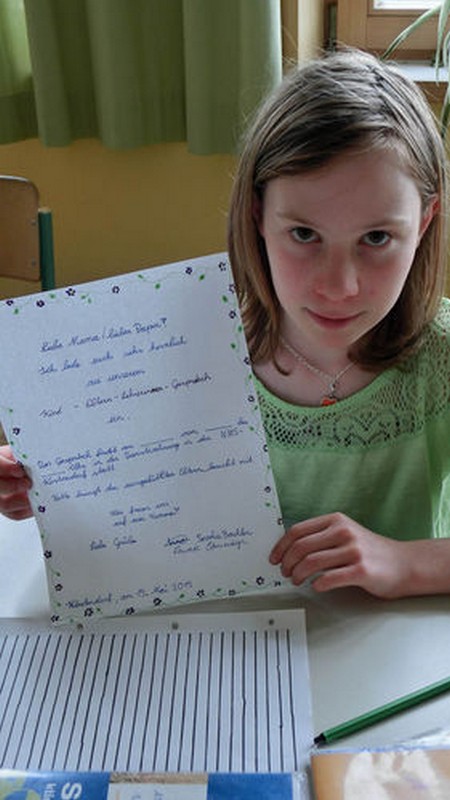 Liebe Mama / lieber Papa!
Ich lade euch sehr herzlich
zu unserem
Kind - Eltern - Lehrerinnen - Gespräch
ein.
Das Gespräch findet am ____ von ____ bis
____ Uhr in der in der NMS-
statt.
Bitte bringt den ausgefüllten Eltern mit
Wir freuen uns
auf euer Kommen!
Liebe Grüße
, am 13. Mai 2015